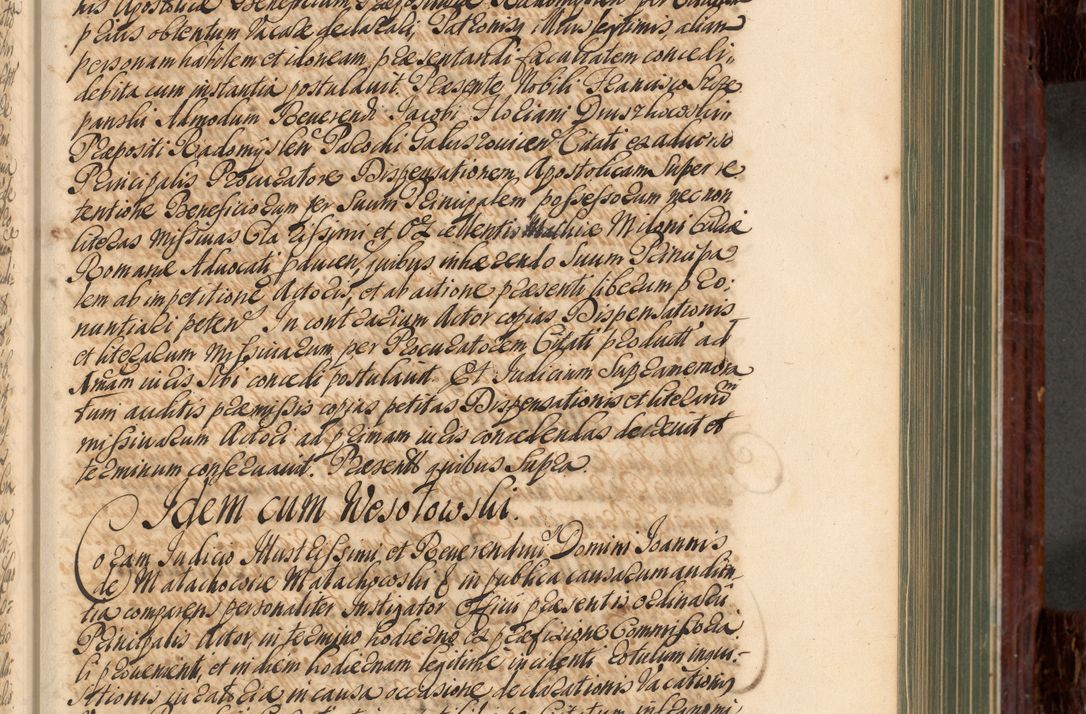 his Apostolicæ Beneficium Præposituræ Radomyslen per
petitis obtentum Vacare declarari, Patronisq illius legitimis, aliam
personam habilem et idoneam præsentandi facultatem concedi
debita cum instantia postulavit. Præsente Nobili Francisco Szcze
panski Admodum Reverendi Jacobi Floriani Druszkowskiǐ
Præpositi Radomyslen Parochi Galuszovicen Citati ex adverso
Principalis Procuratore Dispensationem Apostolicam super re
tentione Beneficiorum per Suum Principalem possessorum nec non
literas Missivas Cla rissimi et Excellentis Miloni Curiæ
Romanæ Advocati producen, quibus inhærendo Suum Principa
lem ab impetitione Actoris, et ab actione præsenti liberum pro:
nuntiari peten. In contrarium Actor copias Dispensationis
et literarum Missivarum per Procuratorem Citati product ad
Imam iuris Sibi concedi postulavit. Et Judicium Supramemora
tum auditis præmissis copias petitas Dispensationis et literarum
missivarum Actori ad primam iuris concedendas decrevit et
terminum conservavit. Præsentt quibus Supra.
Idem cum Wesołowski.
Coram Judicio Illustrissimi et Reverendmi Domini Joannis
de Małachowice Małachowski & in publica causarum audien
tia comparens personaliter Instigator Officii præsentis ordinarii
Principalis Actor, in termino hodierno ex præfixione Commissoria
li provenient, et in diem hodiernam legitime incidenti rotulum inqui-
sitionis iuratoria in causa occasione declarationis Vacationis